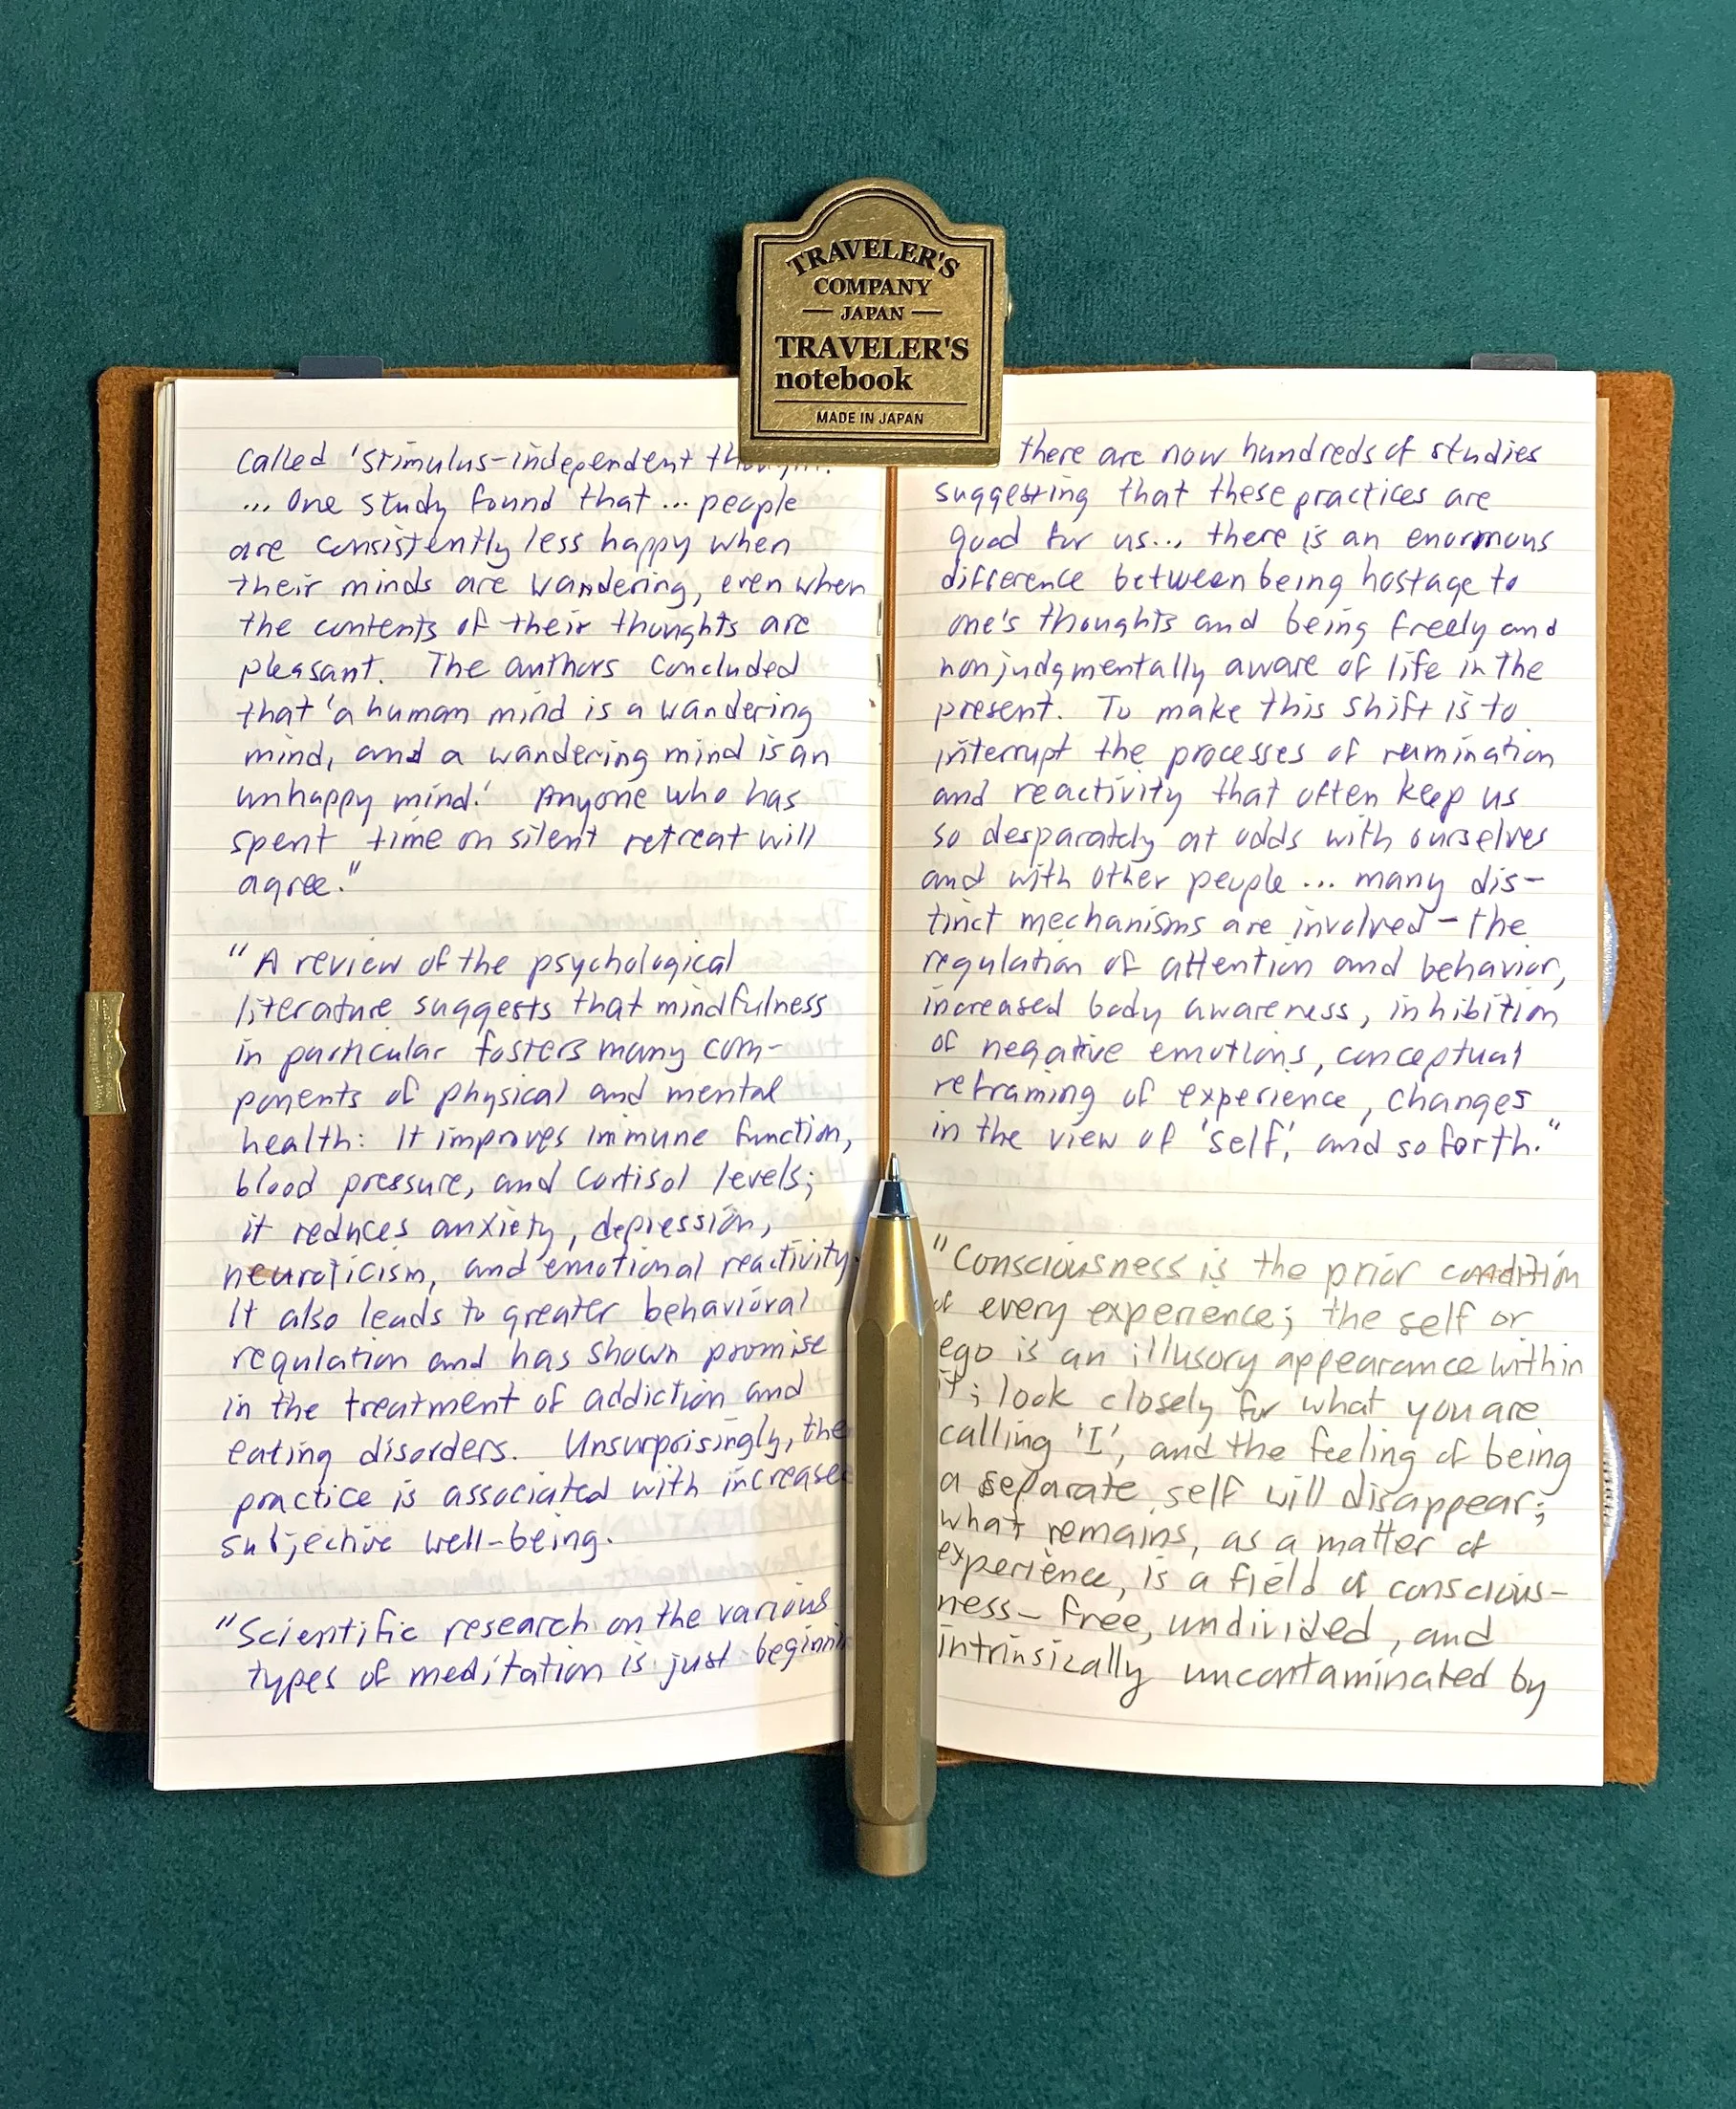 TRAVELER'S
COMPANY
JAPAN
TRAVELER'S
notebook
MADE IN JAPAN
called 'stimulus-independent thought.'
... One study found that ... people
are consistently less happy when
their minds are wandering, even when
the contents of their thoughts are
pleasant. The authors concluded
that 'a human mind is a wandering
mind, and a wandering mind is an
unhappy mind.' Anyone who has
spent time on silent retreat will
agree."
"A review of the psychological
literature suggests that mindfulness
in particular fosters many com-
ponents of physical and mental
health: It improves immune function,
blood pressure, and cortisol levels;
it reduces anxiety, depression,
neuroticism, and emotional reactivity.
It also leads to greater behavioral
regulation and has shown promise
in the treatment of addiction and
eating disorders. Unsurprisingly, the
practice is associated with increased
subjective well-being.
"Scientific research on the various
types of meditation is just beginnin
there are now hundreds of studies
suggesting that these practices are
good for us... there is an enormous
difference between being hostage to
one's thoughts and being freely and
nonjudgmentally aware of life in the
present. To make this shift is to
interrupt the processes of rumination
and reactivity that often keep us
so desparately at odds with ourselves
and with other people ... many dis-
tinct mechanisms are involved - the
regulation of attention and behavior,
increased body awareness, inhibition
of negative emotions, conceptual
reframing of experience, changes
in the view of 'self,' and so forth."
"Consciousness is the prior condition
of every experience; the self or
ego is an illusory appearance within
it; look closely for what you are
calling 'I', and the feeling of being
a separate self will disappear;
what remains, as a matter of
experience, is a field of conscious-
ness - free, undivided, and
intrinsically uncontaminated by